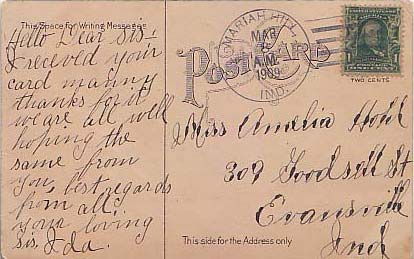 This Space for Writing Messages
Hello Dear Sis-
I receved your
card manny
thanks for it
we are all well
hoping the
same from
you, best regards
from all,
your loving
sis, Ida.
MARIAH HILL,
MAR
6
A.M.
1909
IND.
POST CARD
1
TWO CENTS
Miss Amelia Hohl
309 Goodsell St
Evansville
Ind
This side for the Address only